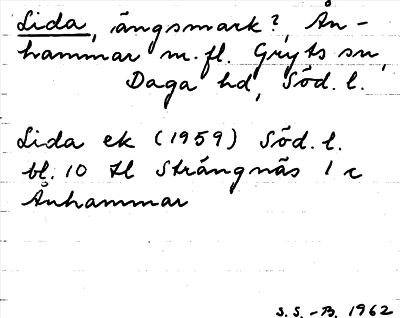 Lida, ängsmark?, Ån-
hammar m.fl. Gryts sn,
Daga hd, Söd. l.
Lida ek (1959) Söd. l.
bl. 10 Hl Strängnäs 1 c
Ånhammar
S.S.-B. 1962